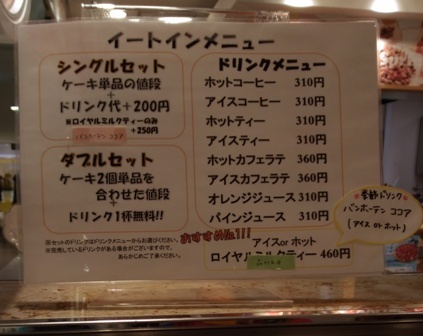 イートインメニュー
シングルセット
ケーキ単品の値段
+
ドリンク代+200円
※ロイヤルミルクティーのみ
+250円
バンホーテン ココア
ダブルセット
ケーキ2個単品を
合わせた値段
+
ドリンク1杯無料!!
※セットのドリンクはドリンクメニューからお選びください。
※完売しているドリンクがある場合がございますので、
あらかじめご了承ください。
ドリンクメニュー
ホットコーヒー 310円
アイスコーヒー 310円
ホットティー 310円
アイスティー 310円
ホットカフェラテ 360円
アイスカフェラテ 360円
オレンジジュース 310円
パインジュース 310円
おすすめNo.1!!
アイスor ホット
ロイヤルミルクティー 460円
季節ドリンク
バンホーテン ココア
(アイス or ホット)